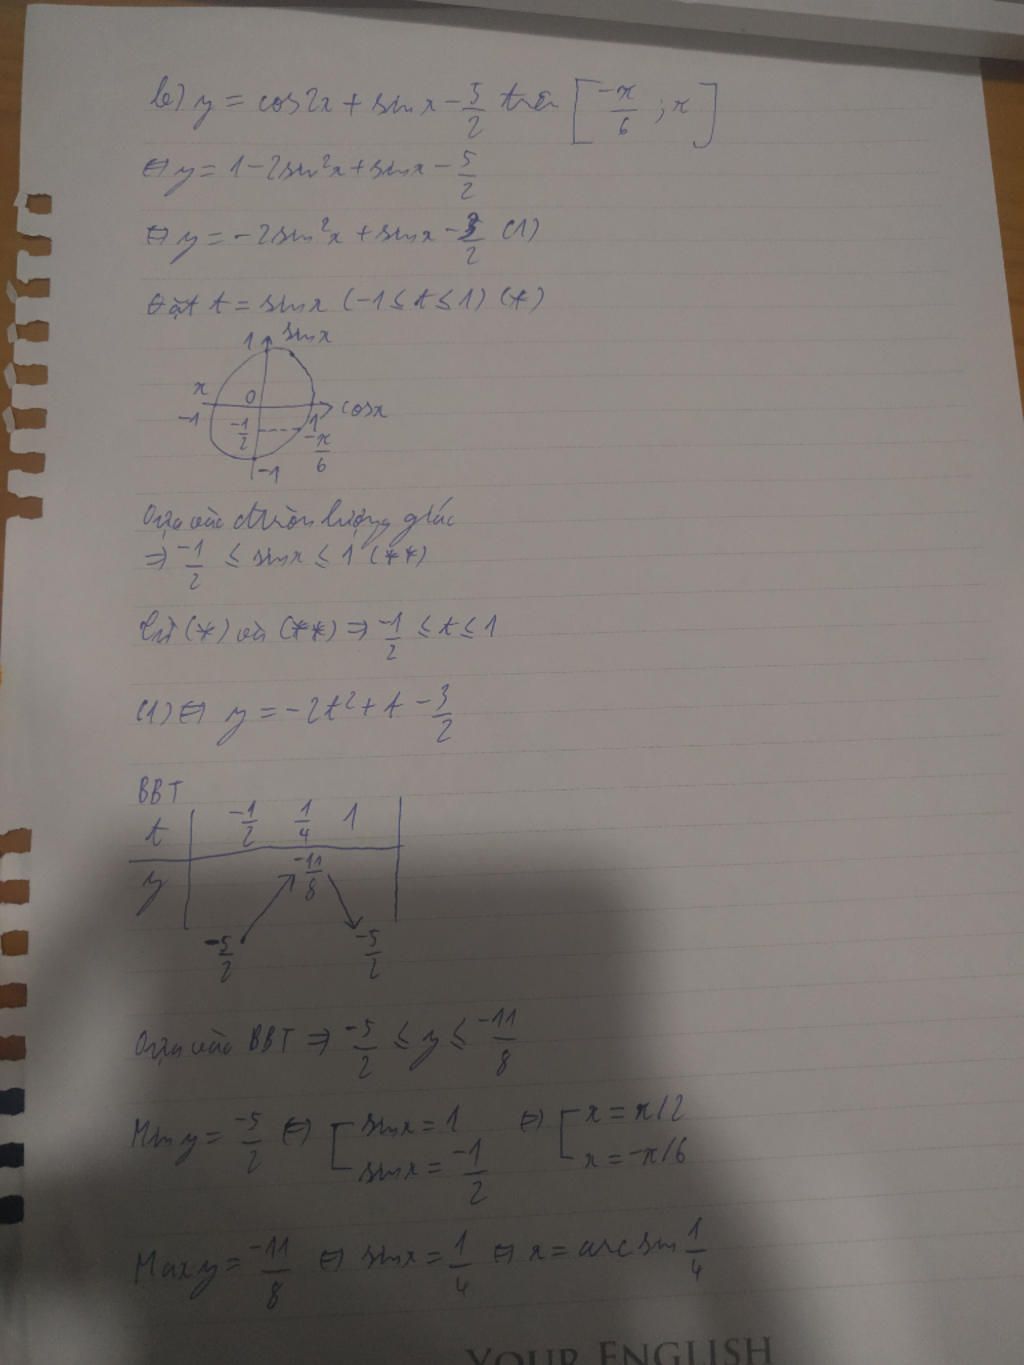 b) y = cos2x + sinx - 5/2 trên [-π/6 ; π]
⇔ y = 1 - 2sin²x + sinx - 5/2
⇔ y = -2sin²x + sinx - 3/2 (1)
Đặt t = sinx (-1 ≤ t ≤ 1) (*)
1 sinx
π 0
-1 -1/2 1 cosx
-π/6
-1
Dựa vào đường lượng giác
⇒ -1/2 ≤ sinx ≤ 1 (**)
Từ (*) và (**) ⇒ -1/2 ≤ t ≤ 1
(1) ⇔ y = -2t² + t - 3/2
BBT
t -1/2 1/4 1
y -11/8
-5/2 -5/2
Dựa vào BBT ⇒ -5/2 ≤ y ≤ -11/8
Min y = -5/2 ⇔ [ sinx = 1 ⇔ [ x = π/2
sinx = -1/2 x = -π/6
Max y = -11/8 ⇔ sinx = 1/4 ⇔ x = arcsin 1/4
YOUR ENGLISH